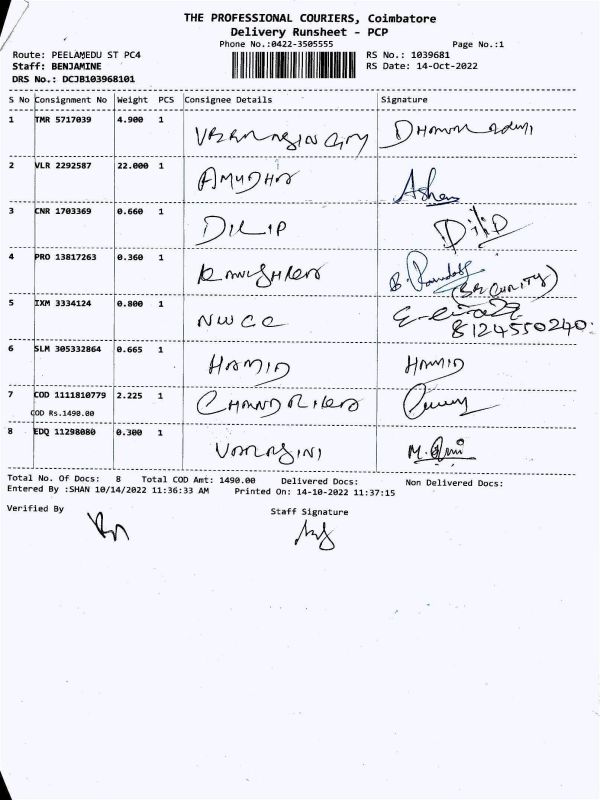 THE PROFESSIONAL COURIERS, Coimbatore
Delivery Runsheet - PCP
Phone No.:0422-3505555 Page No.:1
Route: PEELAMEDU ST PC4 RS No.: 1039681
Staff: BENJAMINE RS Date: 14-Oct-2022
DRS No.: DCJB103968101
S No Consignment No Weight PCS Consignee Details Signature
1 TMR 5717039 4.900 1
2 VLR 2292587 22.000 1 AMUDHA
3 CNR 1703369 0.660 1 DILIP Dilip
4 PRO 13817263 0.360 1
(SECURITY)
5 IXM 3334124 0.800 1 NWCC
8124550240
6 SLM 305332864 0.665 1 HAMID HAMID
7 COD 1111810779 2.225 1
COD Rs.1490.00
8 EDQ 11298080 0.300 1
Total No. Of Docs: 8 Total COD Amt: 1490.00 Delivered Docs: Non Delivered Docs:
Entered By :SHAN 10/14/2022 11:36:33 AM Printed On: 14-10-2022 11:37:15
Verified By Staff Signature